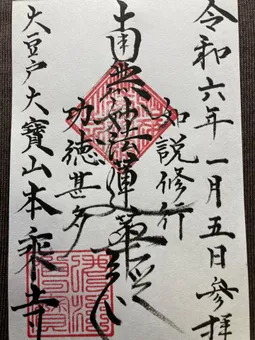 令和六年一月五日參拜
如説修行
南無妙法蓮華経
功徳甚多
大豆戸大寶山本乘寺